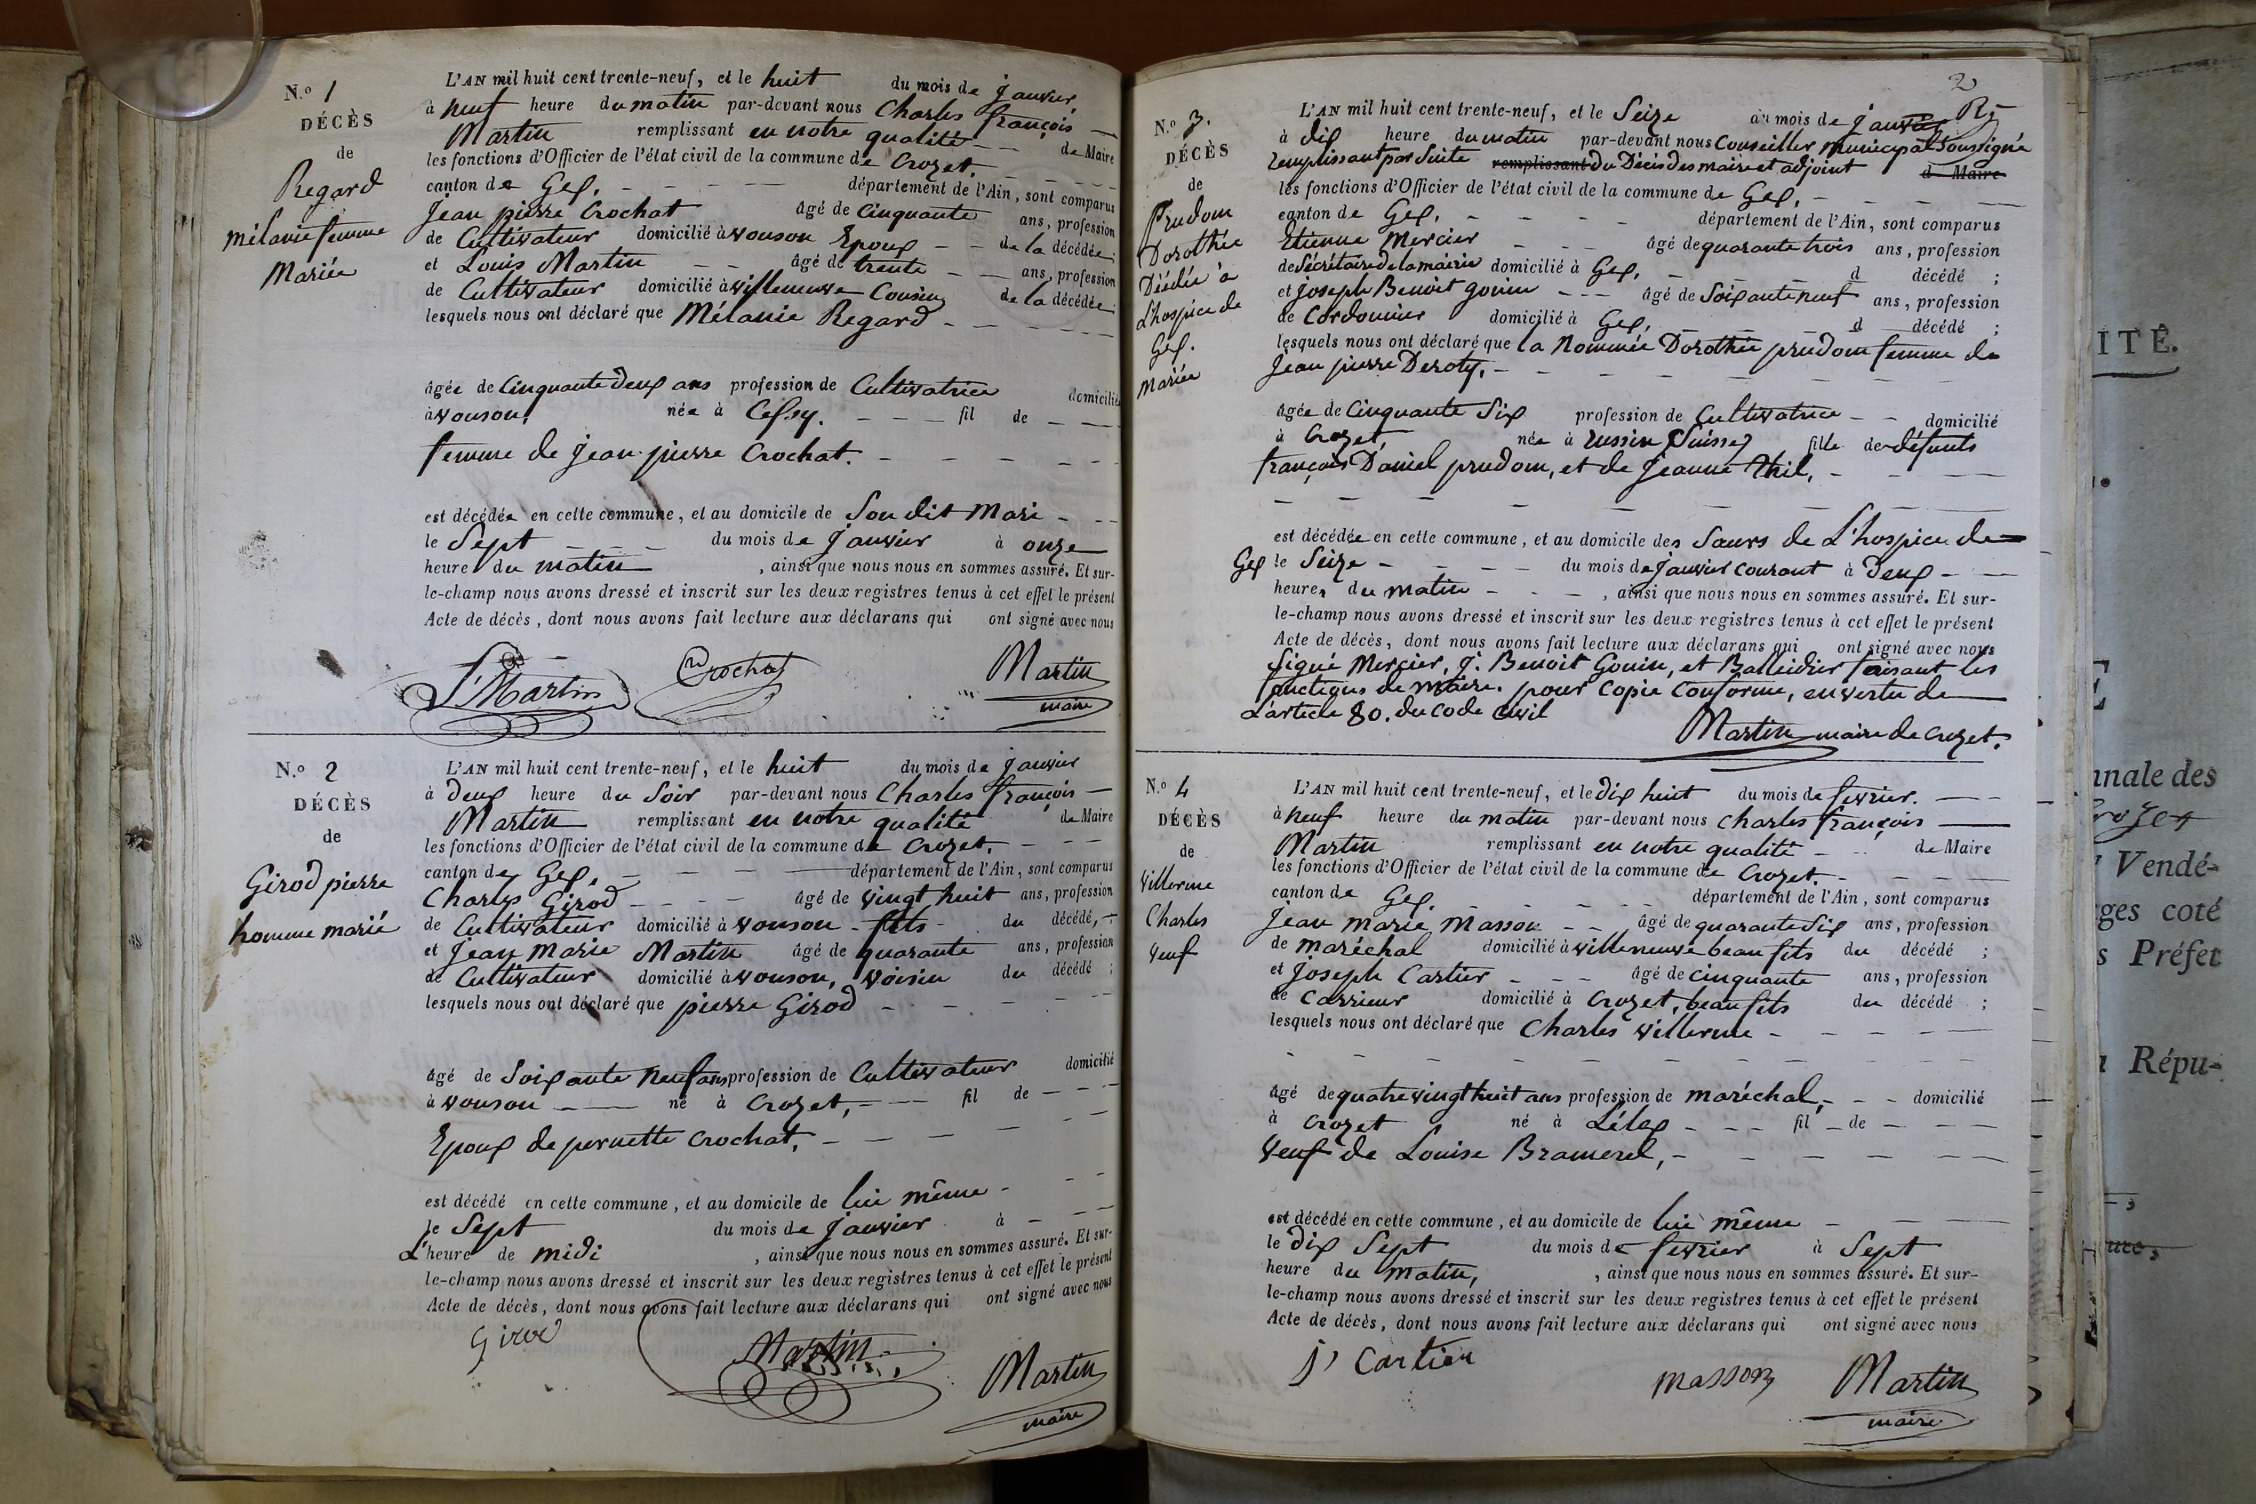 N.º 1
DÉCÈS
de
Regard
mélanie femme
Mariée
L'AN mil huit cent trente-neuf, et le huit du mois de janvier
à neuf heure du matin par-devant nous Charles françois
Martin remplissant en notre qualité de Maire
les fonctions d'Officier de l'état civil de la commune de Crozet.
canton de Gex. département de l'Ain, sont comparus
Jean pierre Crochat âgé de Cinquante ans, profession
de Cultivateur domicilié à vouson Epoux de la décédée;
et Louis Martin âgé de trente ans, profession
de Cultivateur domicilié à villeneuve Cousin de la décédée
lesquels nous ont déclaré que Mélanie Regard
âgée de Cinquante deux ans profession de Cultivatrice domicilié
à vouson, née à Cessy. fil de
femme de jean pierre Crochat.
est décédée en cette commune, et au domicile de Son dit Mari
le Sept du mois de janvier à onze
heure du matin, ainsi que nous nous en sommes assuré. Et sur-
le-champ nous avons dressé et inscrit sur les deux registres tenus à cet effet le présent
Acte de décès, dont nous avons fait lecture aux déclarans qui ont signé avec nous
L Martin Crochat Martin
maire
N.º 2
DÉCÈS
de
Girod pierre
homme marié
L'AN mil huit cent trente-neuf, et le huit du mois de janvier
à Deux heure du Soir par-devant nous Charles françois
Martin remplissant en notre qualité de Maire
les fonctions d'Officier de l'état civil de la commune de Crozet.
canton de Gex. département de l'Ain, sont comparus
Charles Girod âgé de vingt huit ans, profession
de Cultivateur domicilié à vouson fils du décédé,
et Jean Marie Martin âgé de quarante ans, profession
de Cultivateur domicilié à vouson, voisin du décédé;
lesquels nous ont déclaré que pierre Girod
âgé de Soixante neuf ans profession de Cultivateur domicilié
à vouson né à Crozet, fil de
Epoux de pernette Crochat,
est décédé en cette commune, et au domicile de lui même
le Sept du mois de janvier à
L'heure de midi, ainsi que nous nous en sommes assuré. Et sur-
le-champ nous avons dressé et inscrit sur les deux registres tenus à cet effet le présent
Acte de décès, dont nous avons fait lecture aux déclarans qui ont signé avec nous
Girod Martin Martin
maire
2
N.º 3.
DÉCÈS
de
Prudom
Dorothée
Décédée à
L'hospice de
Gex.
mariée
L'AN mil huit cent trente-neuf, et le Seize du mois de janvier
à dix heure du matin par-devant nous Conseiller municipal Soussigné
remplissant par Suite remplissant du Décès des maire et adjoint d Maire
les fonctions d'Officier de l'état civil de la commune de Gex.
canton de Gex. département de l'Ain, sont comparus
Etienne Mercier âgé de quarante trois ans, profession
de Secrétaire de la mairie domicilié à Gex. d décédé;
et joseph Benoit gouin âgé de Soixante neuf ans, profession
de Cordonnier domicilié à Gex. d décédé;
lesquels nous ont déclaré que la Nommée Dorothée prudom femme de
Jean pierre Deroty.
âgée de Cinquante Six profession de Cultivatrice domicilié
à Crozet, née à russin (Suisse) fille de défunts
françois Daniel prudom, et de Jeanne Thil,
est décédée en cette commune, et au domicile des Sœurs de L'hospice de
Gex le Seize du mois de janvier courant à Deux
heures du matin, ainsi que nous nous en sommes assuré. Et sur-
le-champ nous avons dressé et inscrit sur les deux registres tenus à cet effet le présent
Acte de décès, dont nous avons fait lecture aux déclarans qui ont signé avec nous
Signé Mercier, J. Benoit Gouin, et Balleidier faisant les
fonctions de maire. pour copie conforme, en vertu de
L'article 80. du code civil
Martin maire de Crozet.
N.º 4
DÉCÈS
de
Villerme
Charles
Veuf
L'AN mil huit cent trente-neuf, et le Dix huit du mois de fevrier.
à neuf heure du matin par-devant nous Charles françois
Martin remplissant en notre qualité de Maire
les fonctions d'Officier de l'état civil de la commune de Crozet.
canton de Gex. département de l'Ain, sont comparus
Jean marie Masson âgé de quarante Six ans, profession
de maréchal domicilié à villeneuve beau fils du décédé;
et joseph Cartier âgé de cinquante ans, profession
de Carrieur domicilié à Crozet, beau fils du décédé;
lesquels nous ont déclaré que Charles villerme
âgé de quatre vingt huit ans profession de maréchal, domicilié
à Crozet né à Lélex fil de
Veuf de Louise Bramerel,
est décédé en cette commune, et au domicile de lui même
le Dix Sept du mois de fevrier à Sept
heure du matin, ainsi que nous nous en sommes assuré. Et sur-
le-champ nous avons dressé et inscrit sur les deux registres tenus à cet effet le présent
Acte de décès, dont nous avons fait lecture aux déclarans qui ont signé avec nous
J Cartier masson Martin
maire
ITÉ.
nnale des
Vendé-
ges coté
s Préfet
Répu-